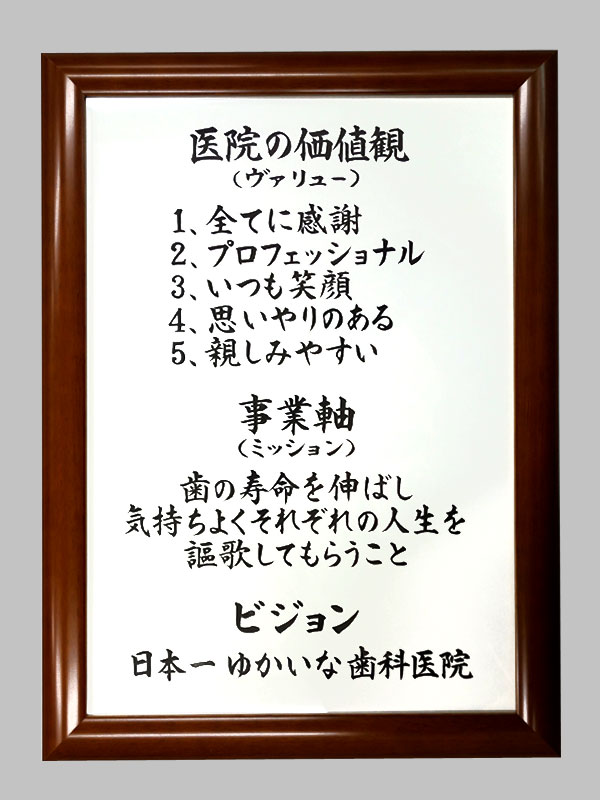 医院の価値観
(ヴァリュー)
1、全てに感謝
2、プロフェッショナル
3、いつも笑顔
4、思いやりのある
5、親しみやすい
事業軸
(ミッション)
歯の寿命を伸ばし
気持ちよくそれぞれの人生を
謳歌してもらうこと
ビジョン
日本一ゆかいな歯科医院